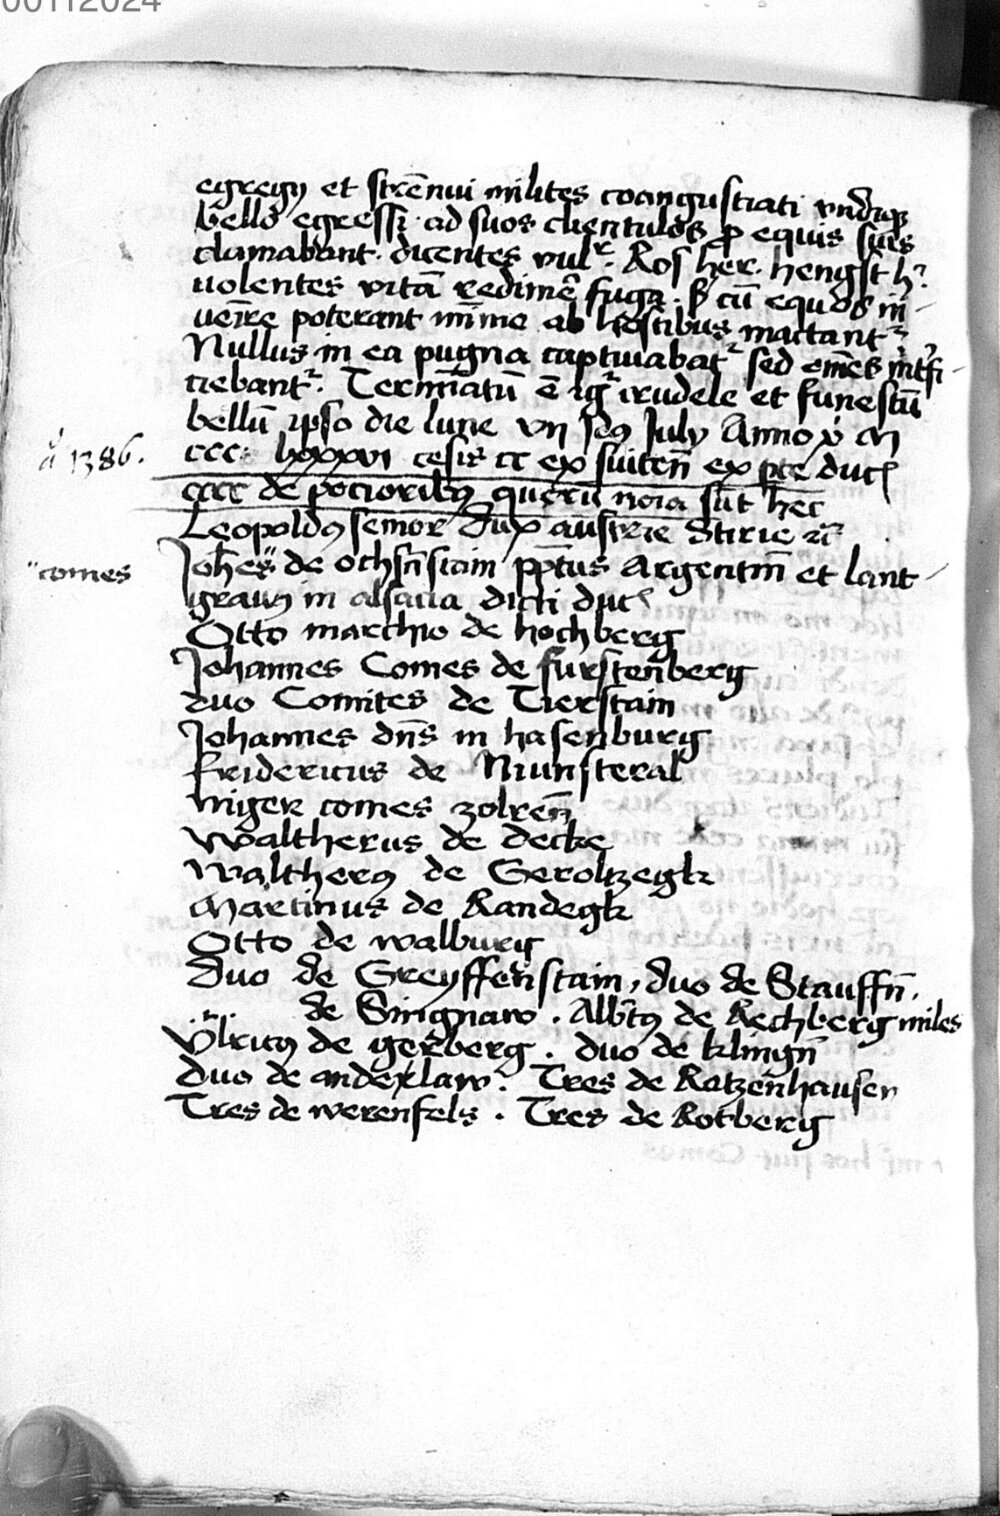 00112024
egregij et stre͞nui milites coangustiati vndiqꝫ
bello egressi · ad suos clientulos ꝓ equis suis
clamabant · dicentes vulr̄ · Ros her · hengst hꝛ
uolentes vitā redime᷑ fuga · sꝫ cū equos in-
uenīre poterant mīme ab hostibus mactantꝛ
Nullus in ea pugna captiuabatꝛ sed om̄es int᷑fi-
ciebantꝛ · Termīatū ē igꝛ crudele et funestū
bellū ipso die lune vij Idꝯ July Anno xͥ M
aͦ 1386 .
ccc · lxxxvi cesis cc ex suiteñ ex pte duc̄
cccc de pocioribꝯ quorū noīa sūt hec
Leopoldꝯ semor dux austrie Stirie ꝛc̄
Joh̄es" de ochsn̄stain pp̄tus Argentin̄ et lant-
"comes
grauij in alsacia dicti duc̄
Otto marchio de hochberg
Johannes Comes de furstenberg
duo Comites de Tierstain
Johannes dn̄s in hasenburg
fridericus de Munsteral
niger comes zolren̄
Waltherus de decke
Waltherꝯ de Geroltzegk
Martinus de Randegk
Otto de walburg
duo de Greyffenstain, duo de Stauffn̄ .
de Sirignaw . Alb̄tꝯ de Rechberg miles
Vͦlricꝯ de gerberg . duo de klingn̄
Duo de andexlaw . Tres de Ratzenhausen
Tres de werenfels . Tres de Rotberg